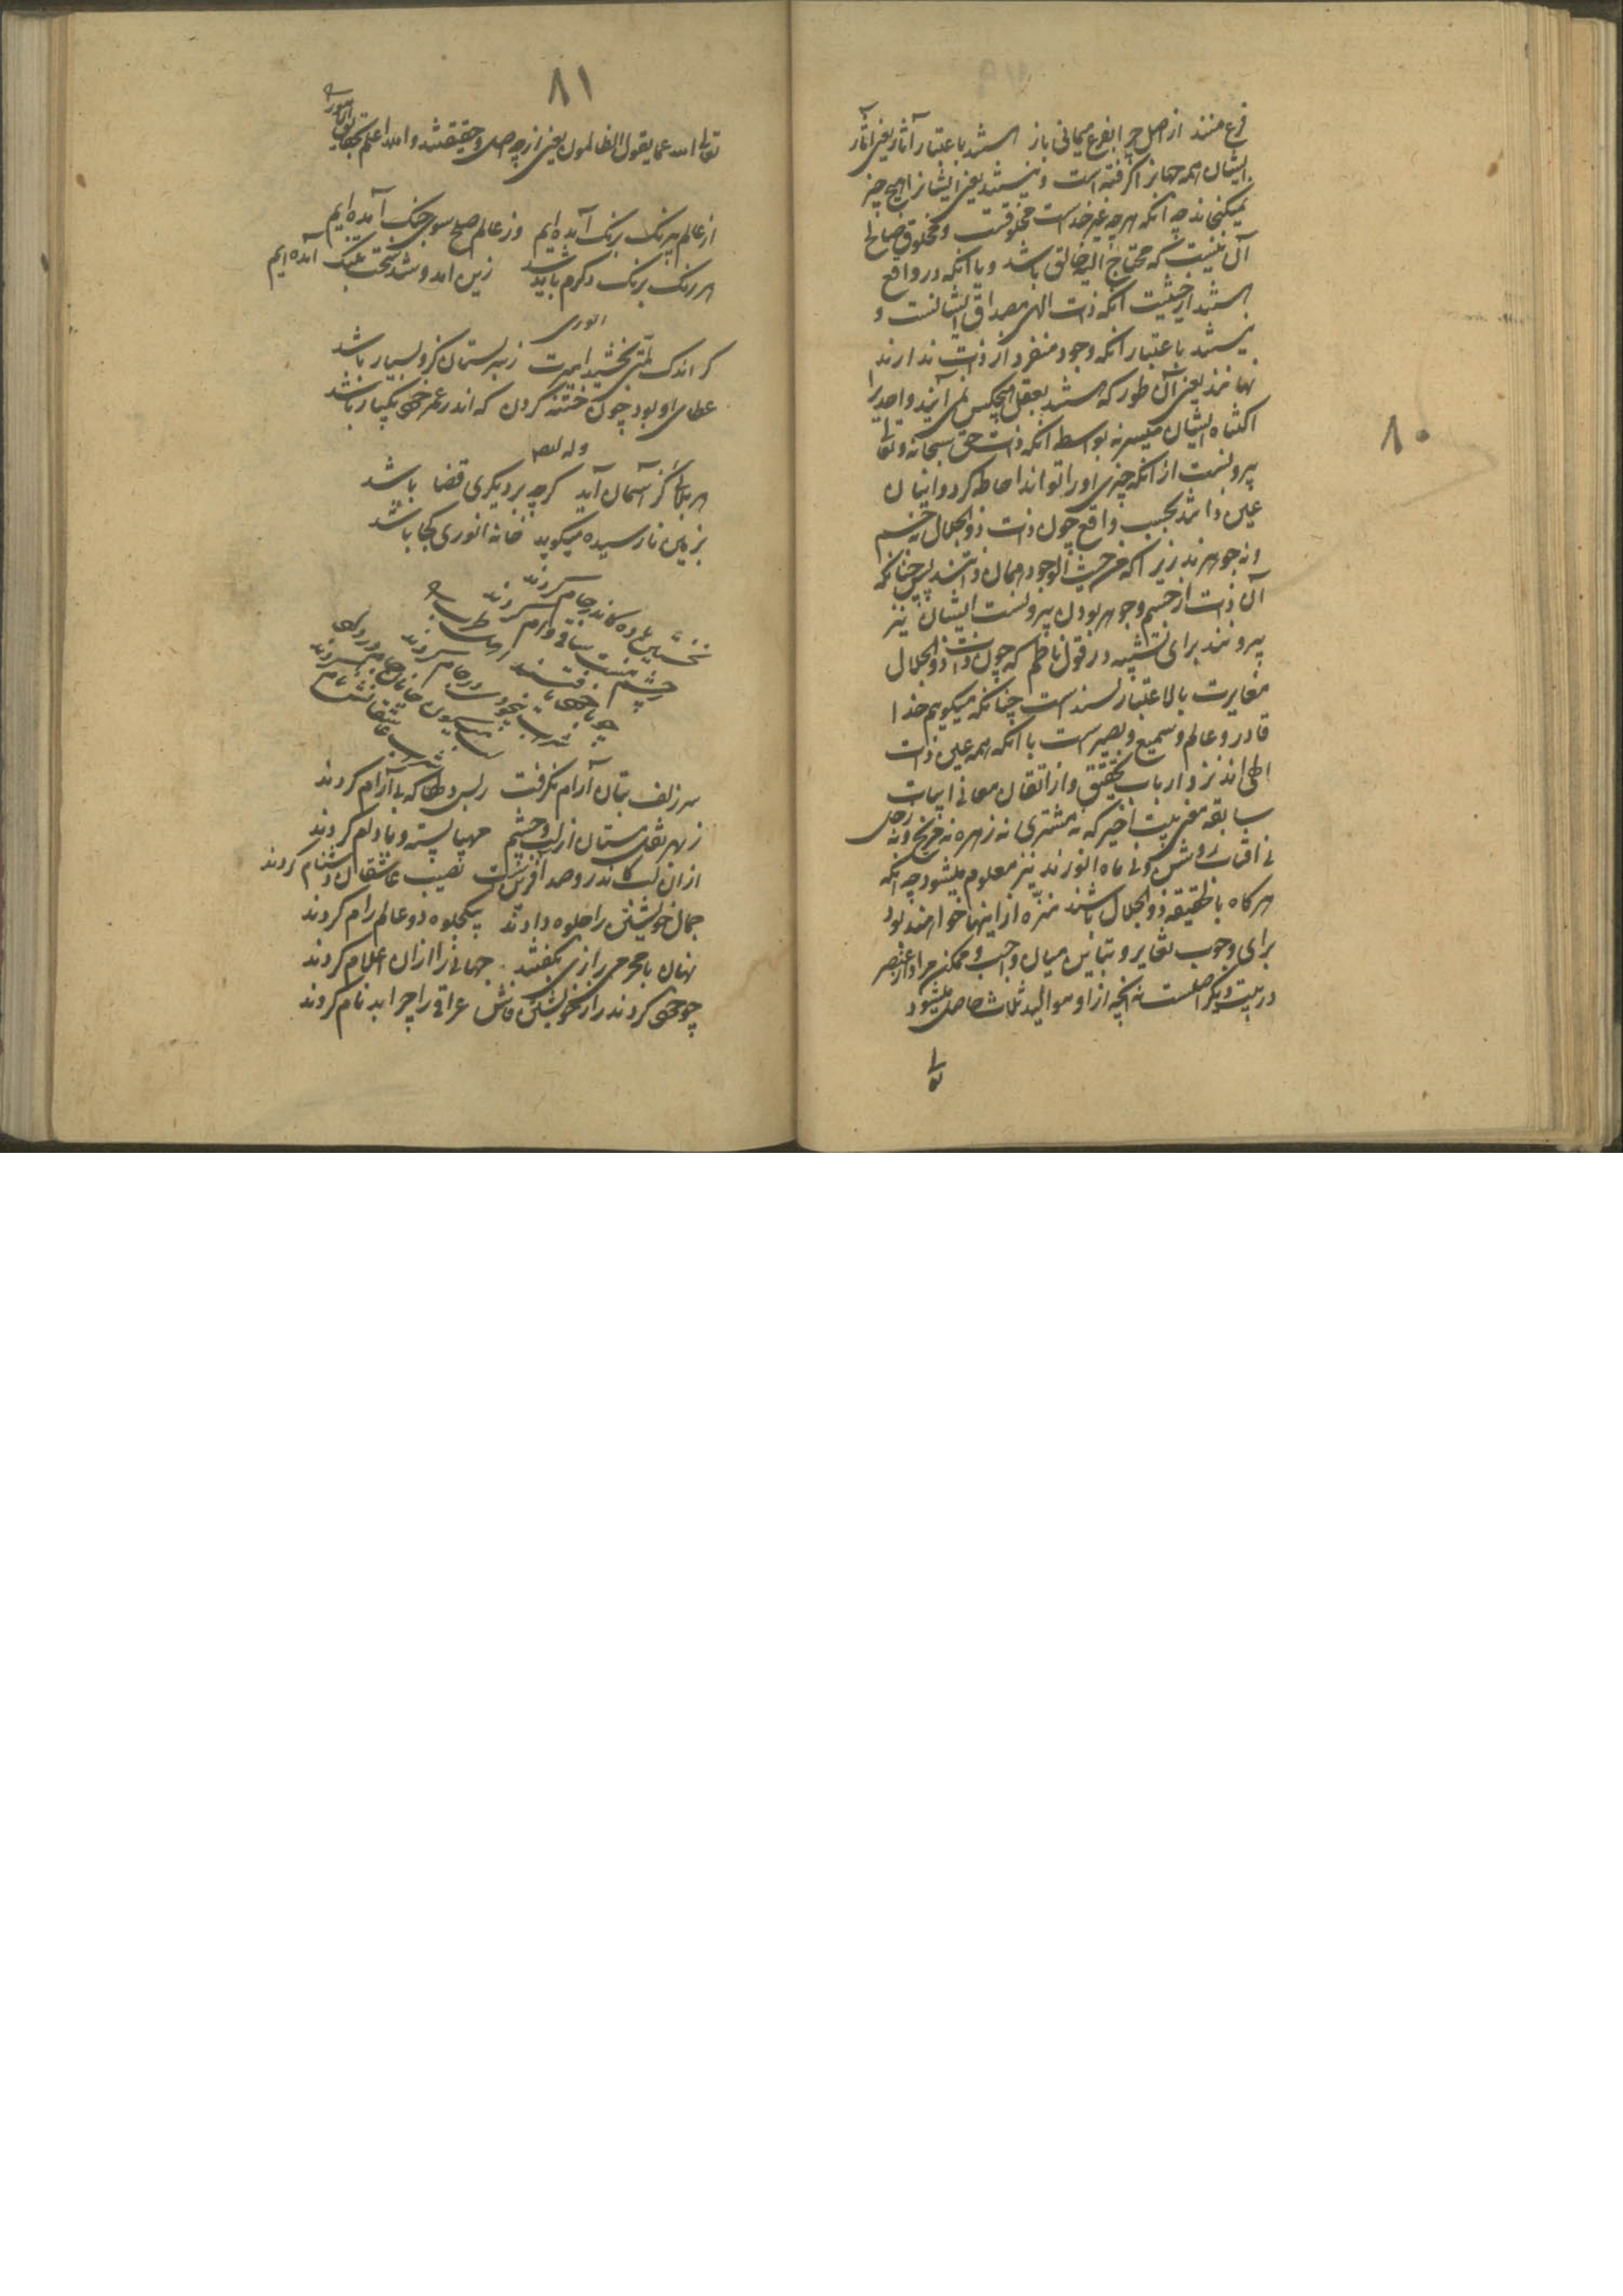 ۸۰
فرع منند از اصل چرا بفرع میمانی باز هستند باعتبار آثار یعنی آثار
ایشان همه جهانرا گرفته است و نیستند یعنی ایشانرا هیچ چیز
نمیکنجاند چه انکه هرچه غیر خداست مخلوقست و مخلوق
آن نیست که محتاج الیه خالق باشد و یا انکه در واقع
هستند از حیثیت انکه ذات الهی مصداق ایشانست و
نیستند باعتبار انکه وجود منفرد از ذات ندارند
نهانند یعنی آن طور که هستند بعقل هیچکس نمی آیند و احدیرا
اکتناه ایشان میسر نه بواسطه انکه ذات حق سبحانه و تعالی
بیرونست از انکه چیزی او را تواند احاطه کرد و اینان
عین ذاتند بحسب واقع چون ذات ذوالجلال نه جسم
و نه جوهرند زیرا که من حیث الوجود همان ذاتند پس چنانکه
آن ذات از جسم و جوهر بودن بیرونست ایشان نیز
بیرونند برای تشبیه در قول ناظم که چون ذات ذوالجلال
مغایرت بالاعتبار بسند است چنانکه میکویم خدا
قادر و عالم و سمیع و بصیر است با انکه همه عین ذات
الهی اند نزد ارباب تحقیق و از اتقان معانی ابیات
سابقه معنی بیت اخیر که نه مشتری نه زهره نه مریخ و نه زحل
نی افتاب روشن و نی ماه انورند نیز معلوم میشود چه انکه
هرکاه بالحقیقه ذوالجلال باشند منزه از اینها خواهند بود
برای وجوب تغایر و تباین میان واجب و ممکن مراد از عنصر
در بیت دیگر اصلست نه انچه از او موالید ثلاث حاصل میشود
تعالی
۸۱
تعالی الله عما یقول الظالمون یعنی از چه اصل و حقیقتند و الله اعلم بحقایق الامور
از عالم بیرنک برنک آمده ایم وز عالم صلح سوی جنک آمده ایم
هر رنک برنک دکرم باید شد زین امد و شد سخت بتنک آمده ایم
انوری
کر اندک بخشید امیرت زبهر لستان کزو بسیار باشد
عطای او بود چون ختنه کردن که اندر عمر خود یکبار باشد
وله ایضا
هر بلائی کز آسمان آید کرچه بر دیکری قضا باشد
بزمین نارسیده میکوید خانه انوری کجا باشد
نخستین باده کاندر جام کردند
ز چشم مست ساقی وام کردند
چو با خود یافتند اهل طرب را
شراب بیخودی در جام کردند
لب میکون جانان جام در داد
شراب عاشقانش نام کردند
سر زلف بتان آرام نکرفت زبس دلها که بی آرام کردند
زبهر نقل مستان از لب و چشم مهیا پسته و بادام کردند
از آن لب کاندرو صد آفرینست نصیب عاشقان دشنام کردند
جمال خویشتن را جلوه دادند بیکجلوه دو عالم رام کردند
نهان با محرمی رازی بکفتند جهانی را ازان اعلام کردند
چو خود کردند راز خویشتن فاش عراقی را چرا بدنام کردند